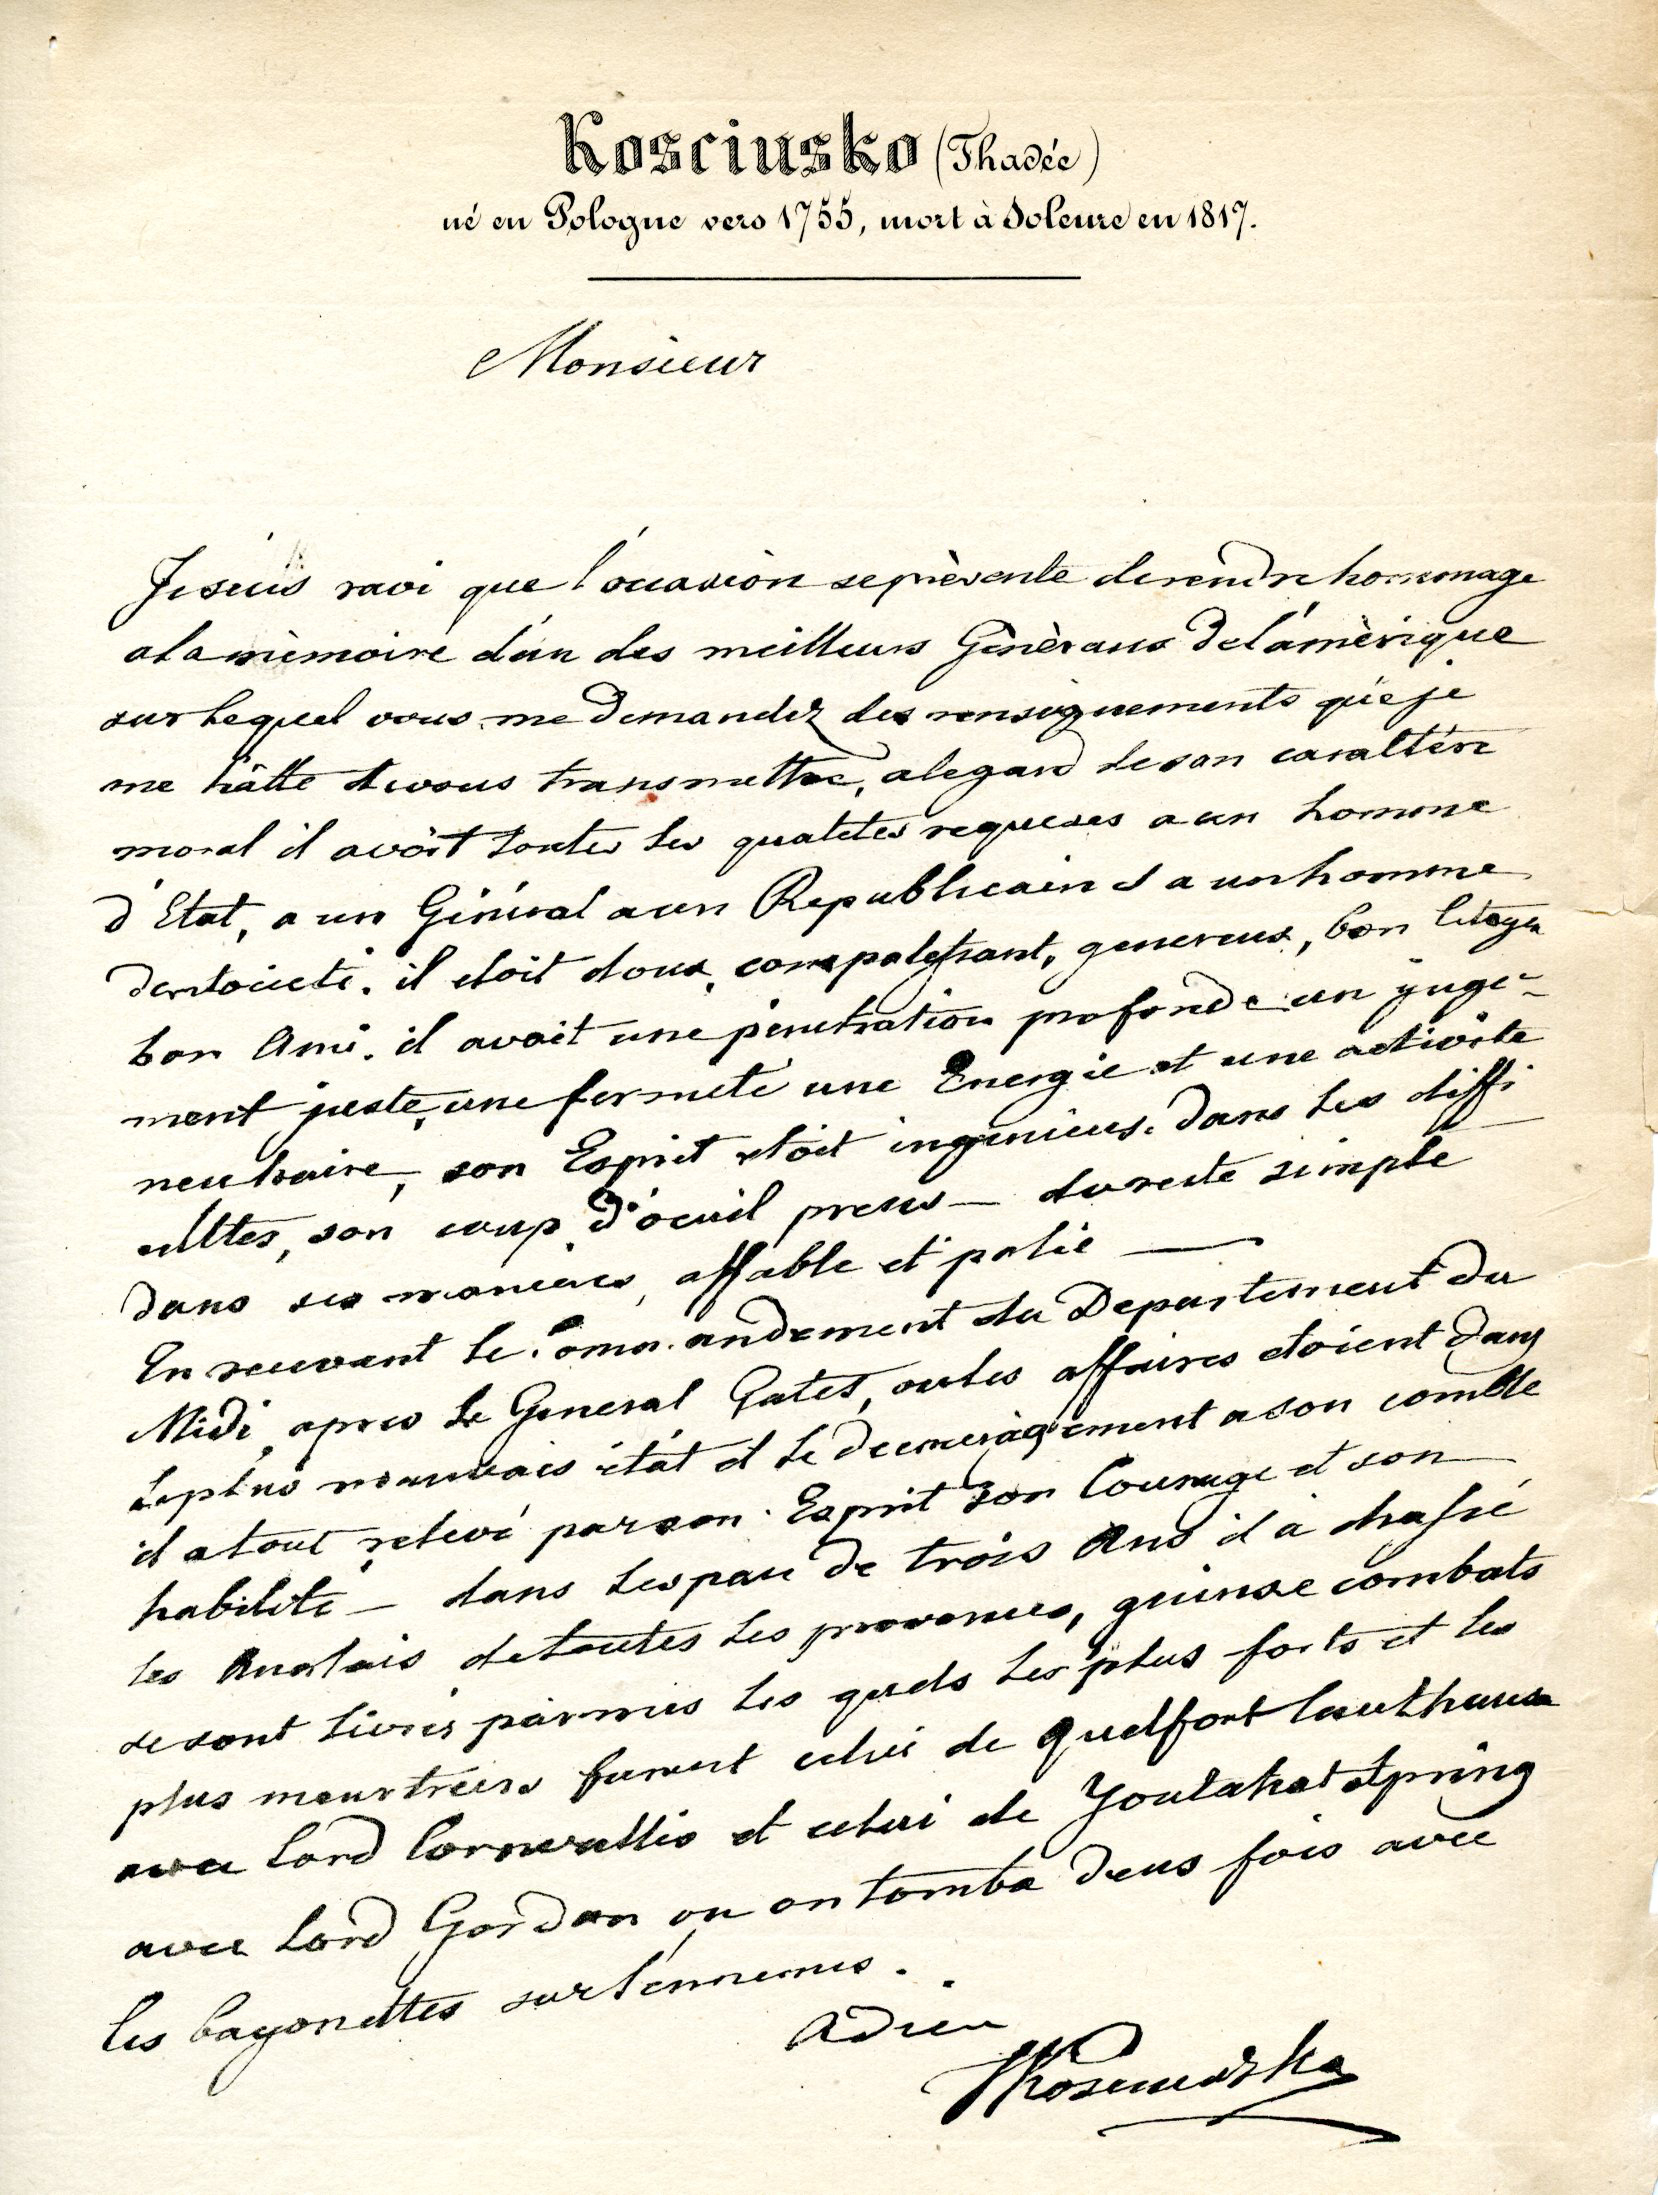 Kosciusko (Thadée)
né en Pologne vers 1755, mort à Soleure en 1817.
Monsieur
Je suis ravi que l'occasion se prèsente de rendre hommage
a la mèmoire d'un des meilleurs Gènèraux de l'amèrique
sur lequel vous me demandez des renseignements que je
me hâtte de vous transmettre, a legard de son caractère
moral il avoit toutes les qualités requises a un homme
d'Etat, a un Général a un Republicain et a un homme
de societé. il etoit doux, compatissant, genereux, bon Citoyen
bon Ami. il avait une penetration profonde un juge-
ment juste, une fermeté une Energie et une activite
necessaire, son Esprit etoit ingenieux. dans les diffi
cultes, son coup d'oeuil precis — du reste simple
dans ses manieres, affable et polie —
En recevant le Commandement du Departement du
Midi, apres le General Gates, ou les affaires etoient dans
le plus mauvais état et le decouragement a son comble
il a tout relevé par son Esprit son Courage et son
habileté — dans l'espace de trois Ans il a chassé
les Anglais de toutes les provinces, quinze combats
se sont livrés parmis les quels les plus forts et les
plus meurtriers furent celui de Quelfort Courthause
avec Lord Cornwallis et celui de Youtahat Spring
avec Lord Gordon ou on tomba deux fois avec
les bayonettes sur l'ennemis.
Adieu
TKosciuszko